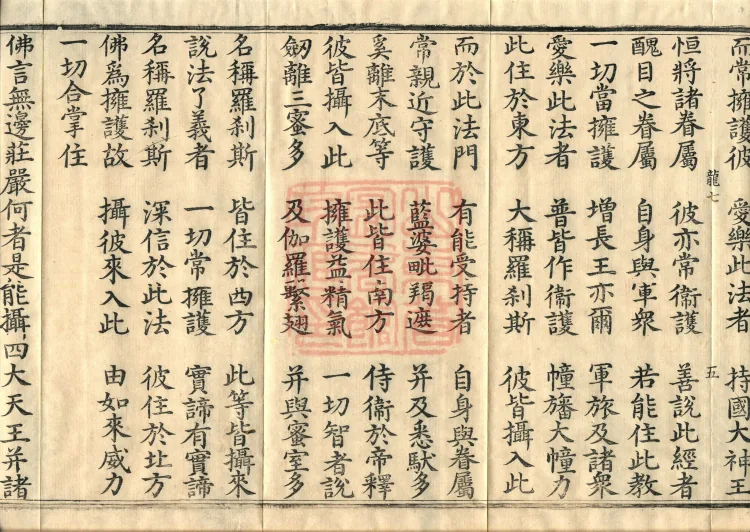 而常擁護彼 愛樂此法者 持國大神王
龍七 五
恒將諸眷屬 彼亦常衛護 善說此經者
醜目之眷屬 自身與軍衆 若能住此教
一切當擁護 增長王亦爾 軍旅及諸衆
愛樂此法者 普皆作衛護 幢旛大幢力
此住於東方 大稱羅剎斯 彼皆攝入此
而於此法門 有能受持者 自身與眷屬
常親近守護 藍婆毗羯遮 并及悉馱多
奚離末底等 此皆住南方 侍衛於帝釋
彼皆攝入此 擁護益精氣 一切智者說
劒離三蜜多 及伽羅繫翅 并與蜜室多
名稱羅剎斯 皆住於西方 此等皆攝來
說法了義者 一切常擁護 實諦有實諦
名稱羅剎斯 深信於此法 彼住於北方
佛爲擁護故 攝彼來入此 由如來威力
一切合掌住
佛言無邊莊嚴何者是能攝四大天王并諸